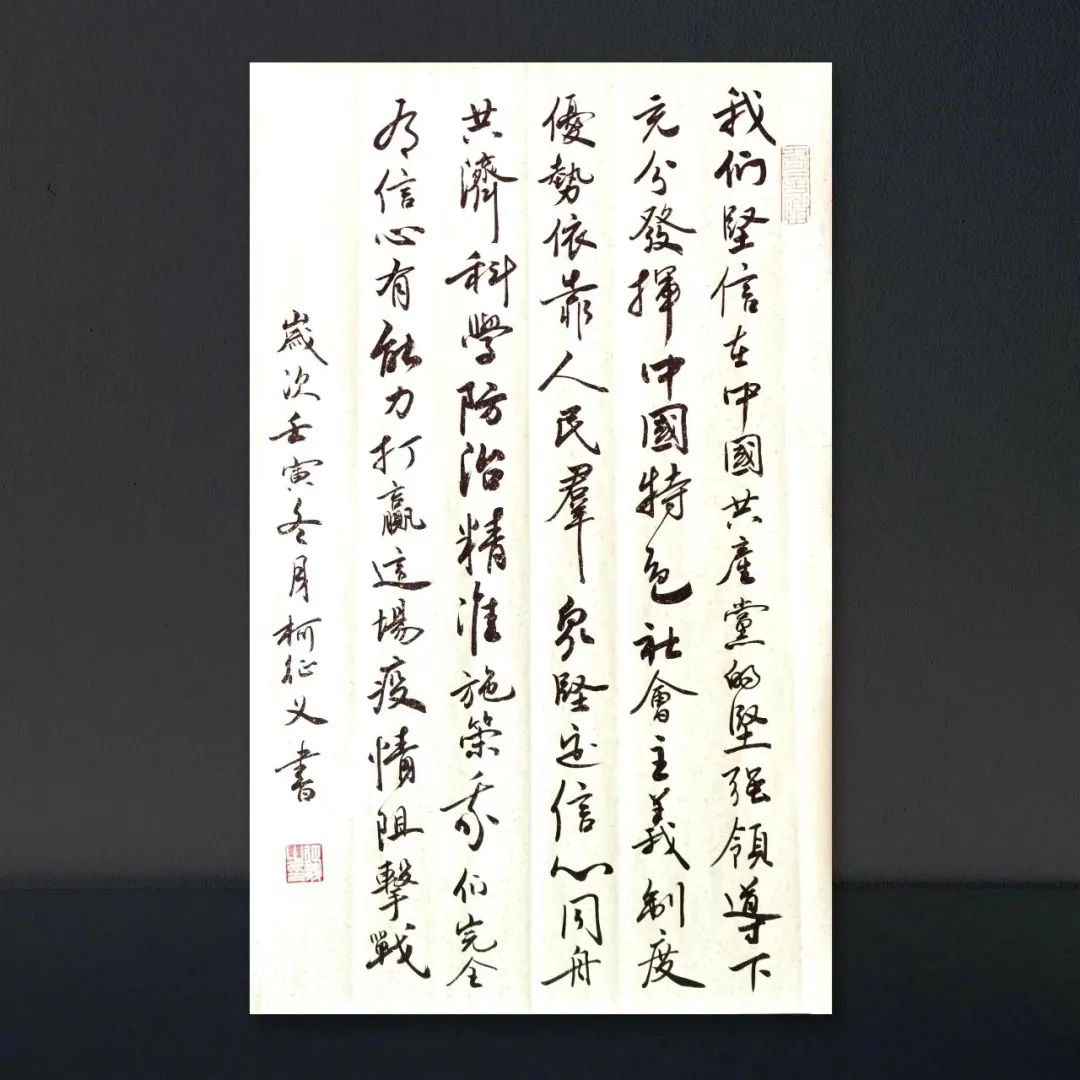 我们堅信在中國共產黨的堅强領導下
充分發揮中國特色社會主義制度
優勢依靠人民羣衆堅定信心同舟
共濟科學防治精准施策我们完全
有信心有能力打贏這場疫情阻擊戰
歲次壬寅冬月柯征义書